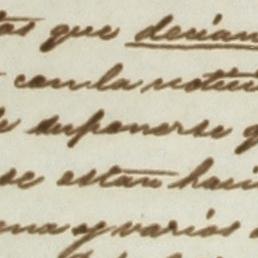 tas que decian
con la noticia
de suponerse q
se estan haci
ena y varios